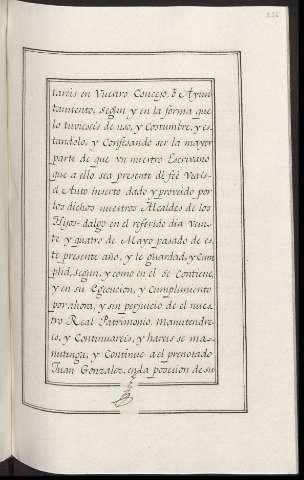 tareis en Vuestro Concejo, ò Ayun-
tamiento, segun y en la forma que
lo tuvieseis de uso, y Costumbre, y es
tandolo, y Confesando ser la mayor
parte de que vn nuestro Escrivano
que a ello sea presente dé feè Veais
el Auto inserto dado y proveido por
los dichos nuestros Alcaldes de los
Hijos-dalgo en el referido dia Vein-
te y quatro de Mayo pasado de es
te presente año, y le guardad, y Cum
plid, segun, y como en el se Contiene,
y en su Egecucion, y Cumplimiento
por ahora, y sin perjuicio de el nues
tro Real Patrimonio, manutendre
is, y Continuareis, y hareis se ma-
nutenga, y Continue a el prenotado
Juan Gonzalez, en la posecion de su